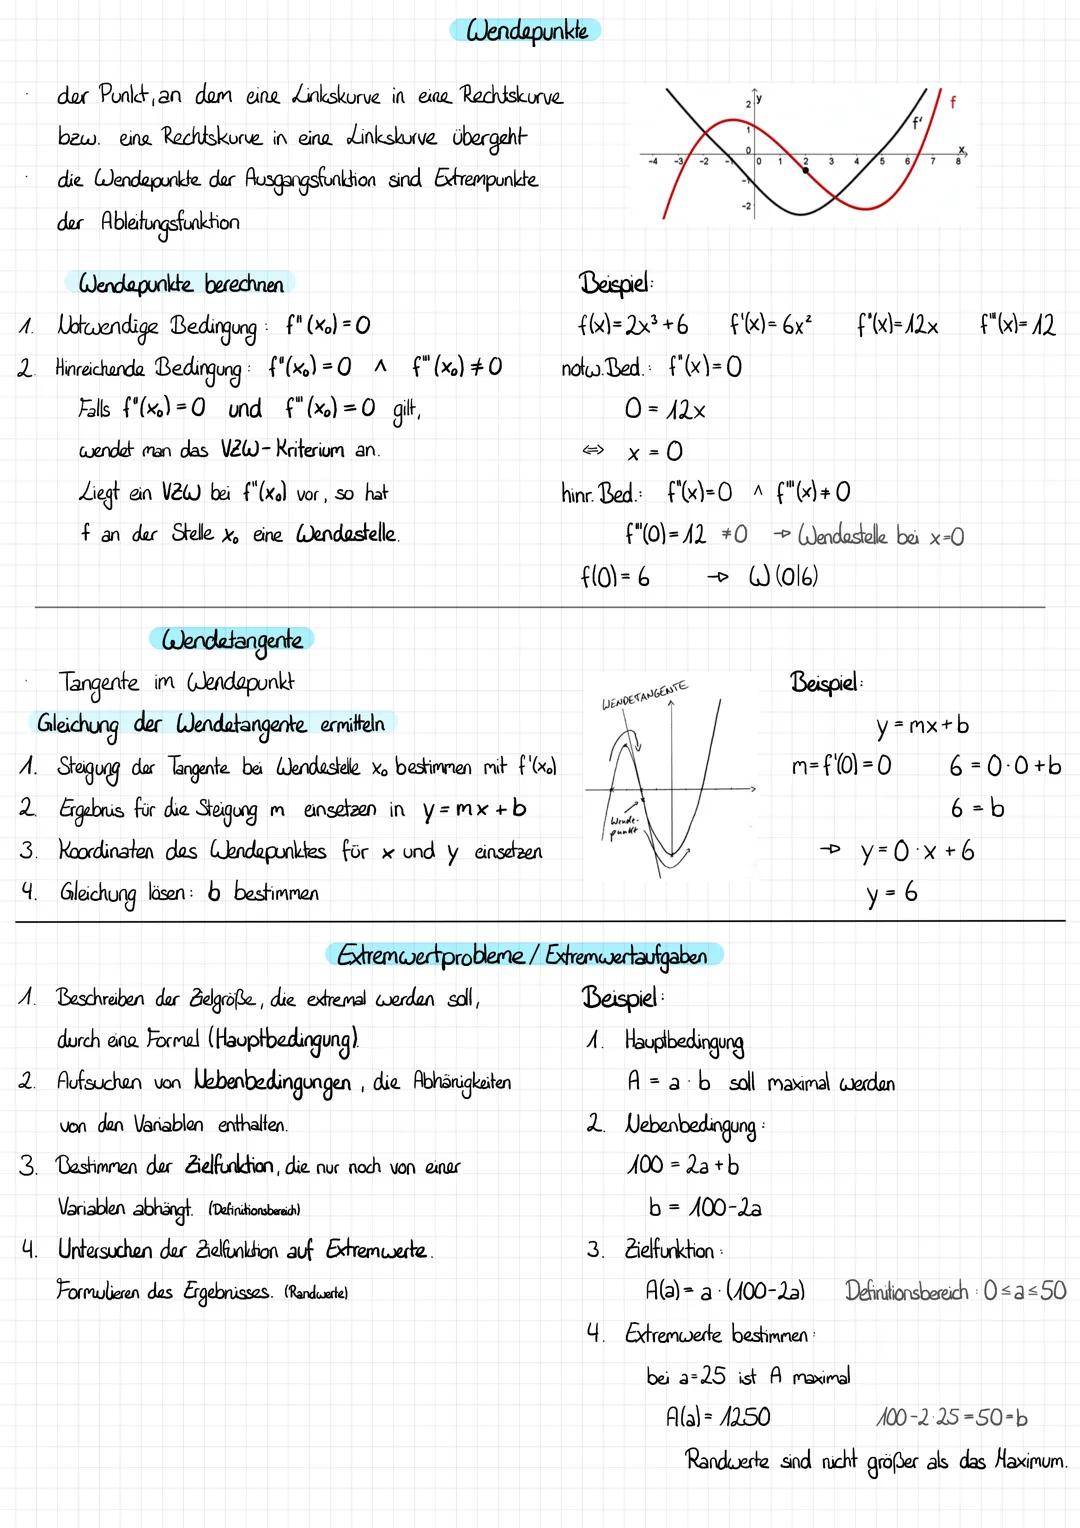 Wendepunkte
· der Punkt, an dem eine Linkskurve in eine Rechtskurve
bzw. eine Rechtskurve in eine Linkskurve übergeht
· die Wendepunkte der Ausgangsfunktion sind Extrempunkte
der Ableitungsfunktion
y
f
f'
x
2
1
0
-1
-2
-4 -3 -2 -1 0 1 2 3 4 5 6 7 8
Wendepunkte berechnen
1. Notwendige Bedingung: f"(x₀) = 0
2. Hinreichende Bedingung: f"(x₀) = 0 ∧ f'''(x₀) ≠ 0
Falls f"(x₀) = 0 und f'''(x₀) = 0 gilt,
wendet man das VZW-Kriterium an.
Liegt ein VZW bei f"(x₀) vor, so hat
f an der Stelle x₀ eine Wendestelle.
Beispiel:
f(x)= 2x³ + 6 f'(x)= 6x² f"(x)= 12x f'''(x)= 12
notw. Bed.: f"(x) = 0
0 = 12x
⇔ x = 0
hinr. Bed.: f"(x)=0 ∧ f'''(x) ≠ 0
f'''(0) = 12 ≠ 0 → Wendestelle bei x=0
f(0) = 6 → W (0|6)
Wendetangente
· Tangente im Wendepunkt
Gleichung der Wendetangente ermitteln
1. Steigung der Tangente bei Wendestelle x₀ bestimmen mit f'(x₀)
2. Ergebnis für die Steigung m einsetzen in y = mx + b
3. Koordinaten des Wendepunktes für x und y einsetzen
4. Gleichung lösen: b bestimmen
WENDETANGENTE
Wende-
punkt
Beispiel:
y = mx + b
m = f'(0) = 0 6 = 0 · 0 + b
6 = b
→ y = 0 · x + 6
y = 6
Extremwertprobleme / Extremwertaufgaben
1. Beschreiben der Zielgröße, die extremal werden soll,
durch eine Formel (Hauptbedingung).
2. Aufsuchen von Nebenbedingungen, die Abhänigkeiten
von den Variablen enthalten.
3. Bestimmen der Zielfunktion, die nur noch von einer
Variablen abhängt. (Definitionsbereich)
4. Untersuchen der Zielfunktion auf Extremwerte.
Formulieren des Ergebnisses. (Randwerte)
Beispiel:
1. Hauptbedingung
A = a · b soll maximal werden
2. Nebenbedingung:
100 = 2a + b
b = 100-2a
3. Zielfunktion:
A(a) = a · (100-2a) Definitionsbereich: 0 ≤ a ≤ 50
4. Extremwerte bestimmen:
bei a=25 ist A maximal
A(a) = 1250 100-2·25 = 50 = b
Randwerte sind nicht größer als das Maximum.